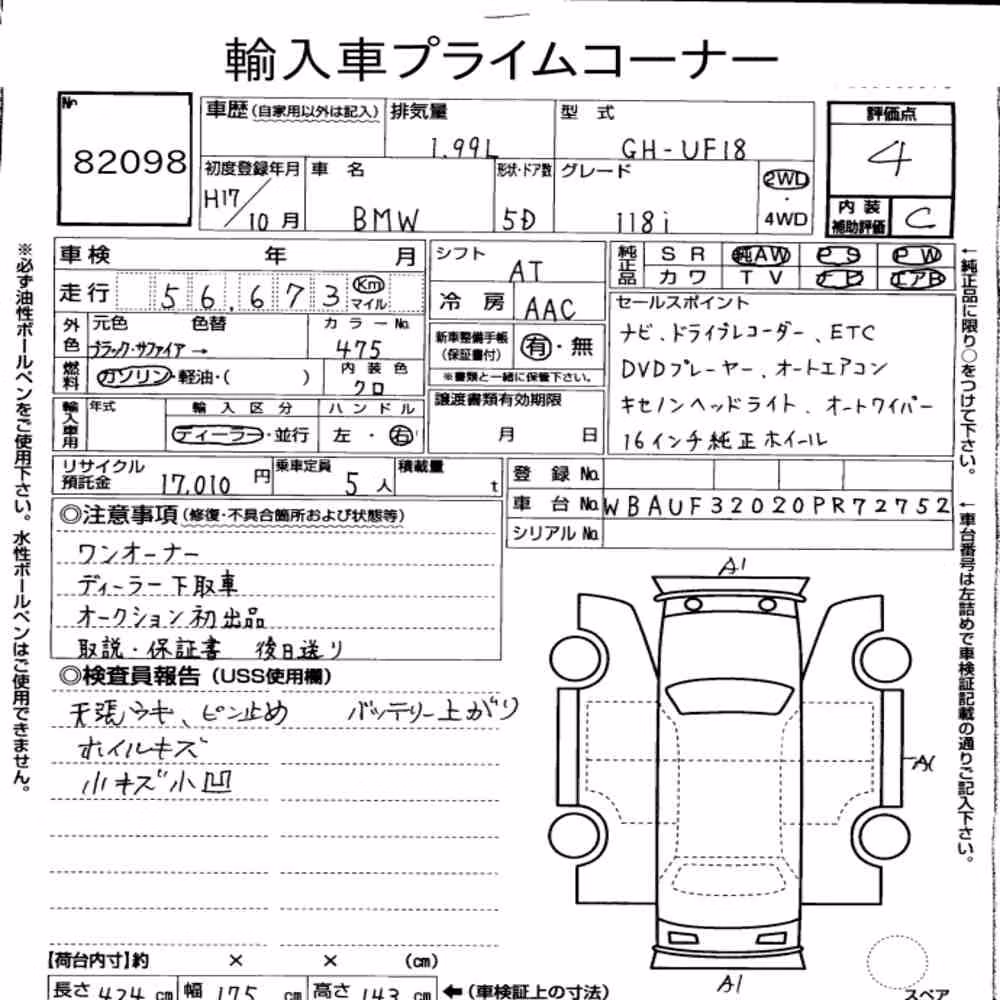 輸入車プライムコーナー
No 82098
車歴(自家用以外は記入) 排気量 1.99L 型式 GH-UF18
評価点 4
初度登録年月 H17/10月 車名 BMW 形状・ドア数 5D グレード 118i 2WD・4WD
内装補助評価 C
車検 年 月
走行 56.673 Km マイル
シフト AT
冷房 AAC
純正品 SR 純AW PS PW
カワ TV ナビ エアB
外色 元色 色替 カラーNo
ブラック・サファイア→ 475
燃料 ガソリン・軽油・( ) 内装色 クロ
新車整備手帳(保証書付) 有・無
※書類と一緒に保管下さい。
セールスポイント
ナビ、ドライブレコーダー、ETC
DVDプレーヤー、オートエアコン
キセノンヘッドライト、オートワイパー
16インチ純正ホイール
輸入車用 年式 輸入区分 ハンドル
ディーラー・並行 左・右
譲渡書類有効期限
月 日
リサイクル預託金 17,010円 乗車定員 5人 積載量 t
登録No
車台No WBAUF32020PR72752
シリアルNo
◎注意事項(修復・不具合箇所および状態等)
ワンオーナー
ディーラー下取車
オークション初出品
取説・保証書 後日送り
◎検査員報告(USS使用欄)
天張ウキ、ピン止め バッテリー上がり
ホイルキズ
小キズ小凹
A1
A1
A1
スペア
【荷台内寸】約 × × (cm)
長さ 424 cm 幅 175 cm 高さ 143 cm ←(車検証上の寸法)
※必ず油性ボールペンをご使用下さい。水性ボールペンはご使用できません。
←純正品に限り○をつけて下さい。
←車台番号は左詰めで車検証記載の通りご記入下さい。